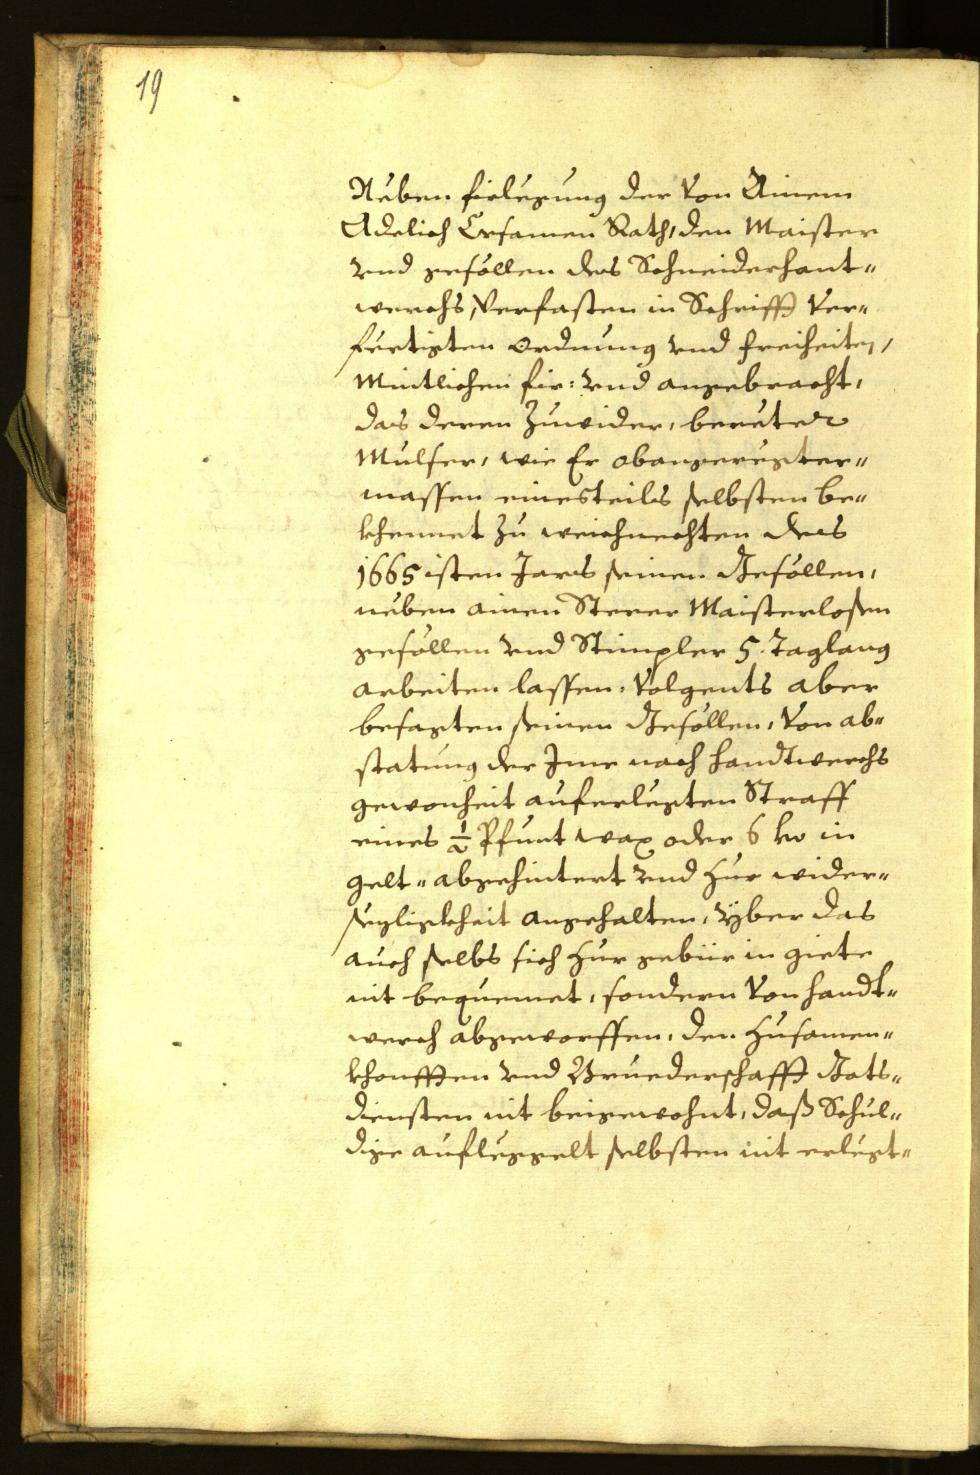 19
Neben firlegung der Von Ainem
Adelich Ersamen Rath, den Maister
vnd gesöllen des Schneiderhant-„
werchs, Verfasten in Schrifft Ver-„
fertigten Ordnung vnd freiheiten,
Mintlichen fir: vnd angebracht,
das deren Zuwider, berüerter
Mulser, wie Er obangeregter-„
massen einesteils selbsten be-„
khennet zu weichnechten des
1665 isten Jars seinen Gesöllen,
neben ainen Sterer Maisterlosen
gesöllen vnd Stimpler 5. Taglang
arbeiten lassen. Volgents aber
besagten seinen Gesöllen, Von ab-„
statung der Jme nach handtwerchs
gewonheit auferlegten Straff
eines ½ Pfunt wax oder 6 kr in
gelt„ abgehintert vnd zur wider-„
sezligkheit angehalten, yber das
auch selbs sich zur gebür in giete
nit bequemet, sondern Von handt-„
werch abgeworffen, den Zusamen-„
khonfften vnd Bruederschafft Gots-„
diensten nit beigewohnt, daß Schul-„
dige aufleggelt selbsten nit erlegt-„